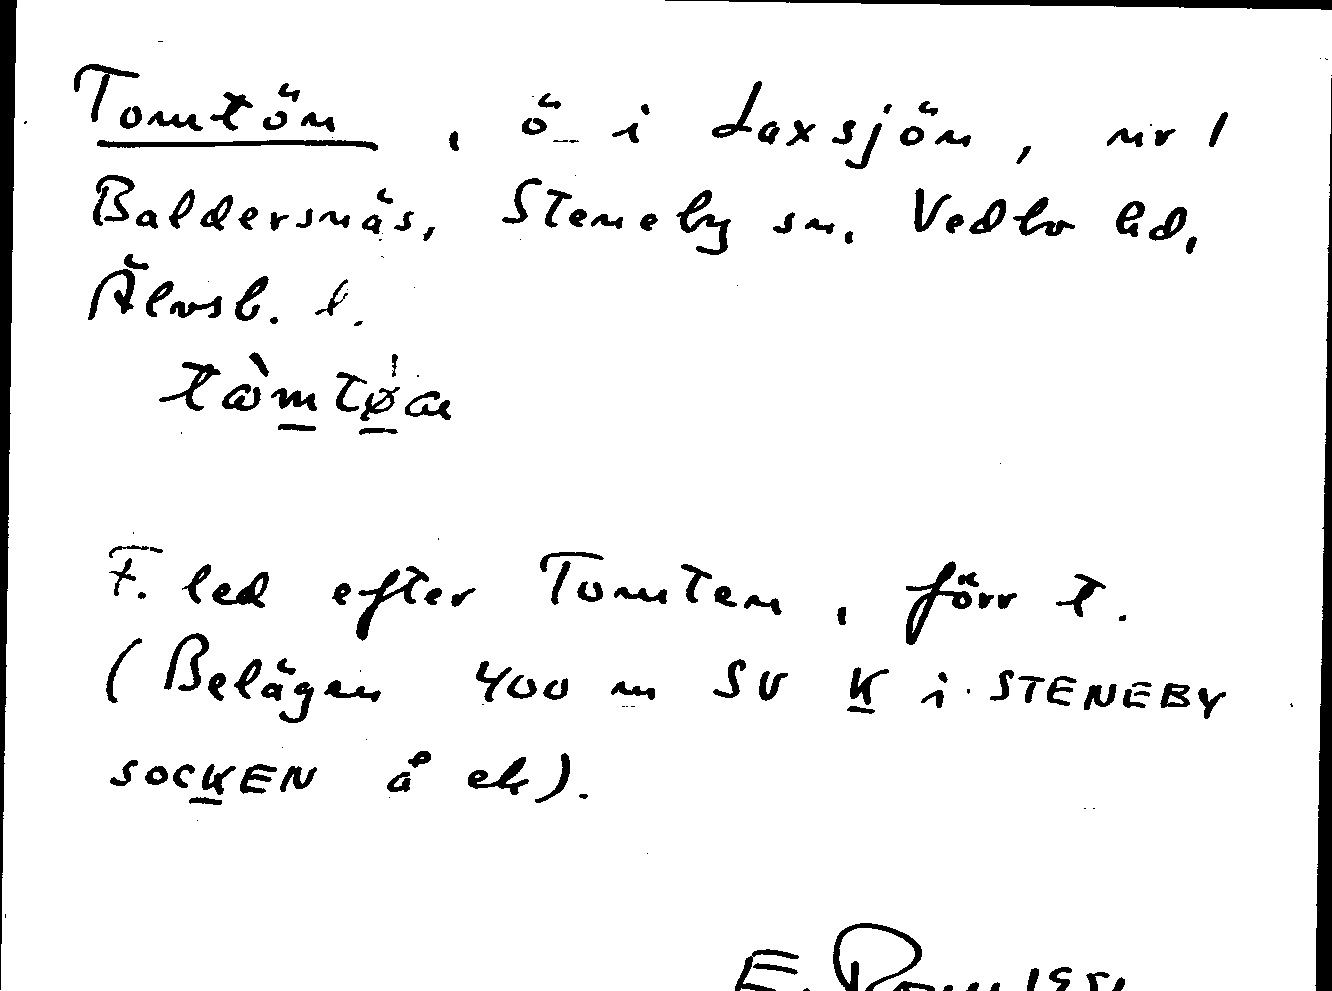 Tomtön, ö i Laxsjön, nr 1
Baldersnäs, Steneby sn. Vedbo hd,
Älvsb. l.
tòmtøa
F. led efter Tomten, förr t.
(Belägen 400 m SV K i STENEBY
SOCKEN å ek).
E.